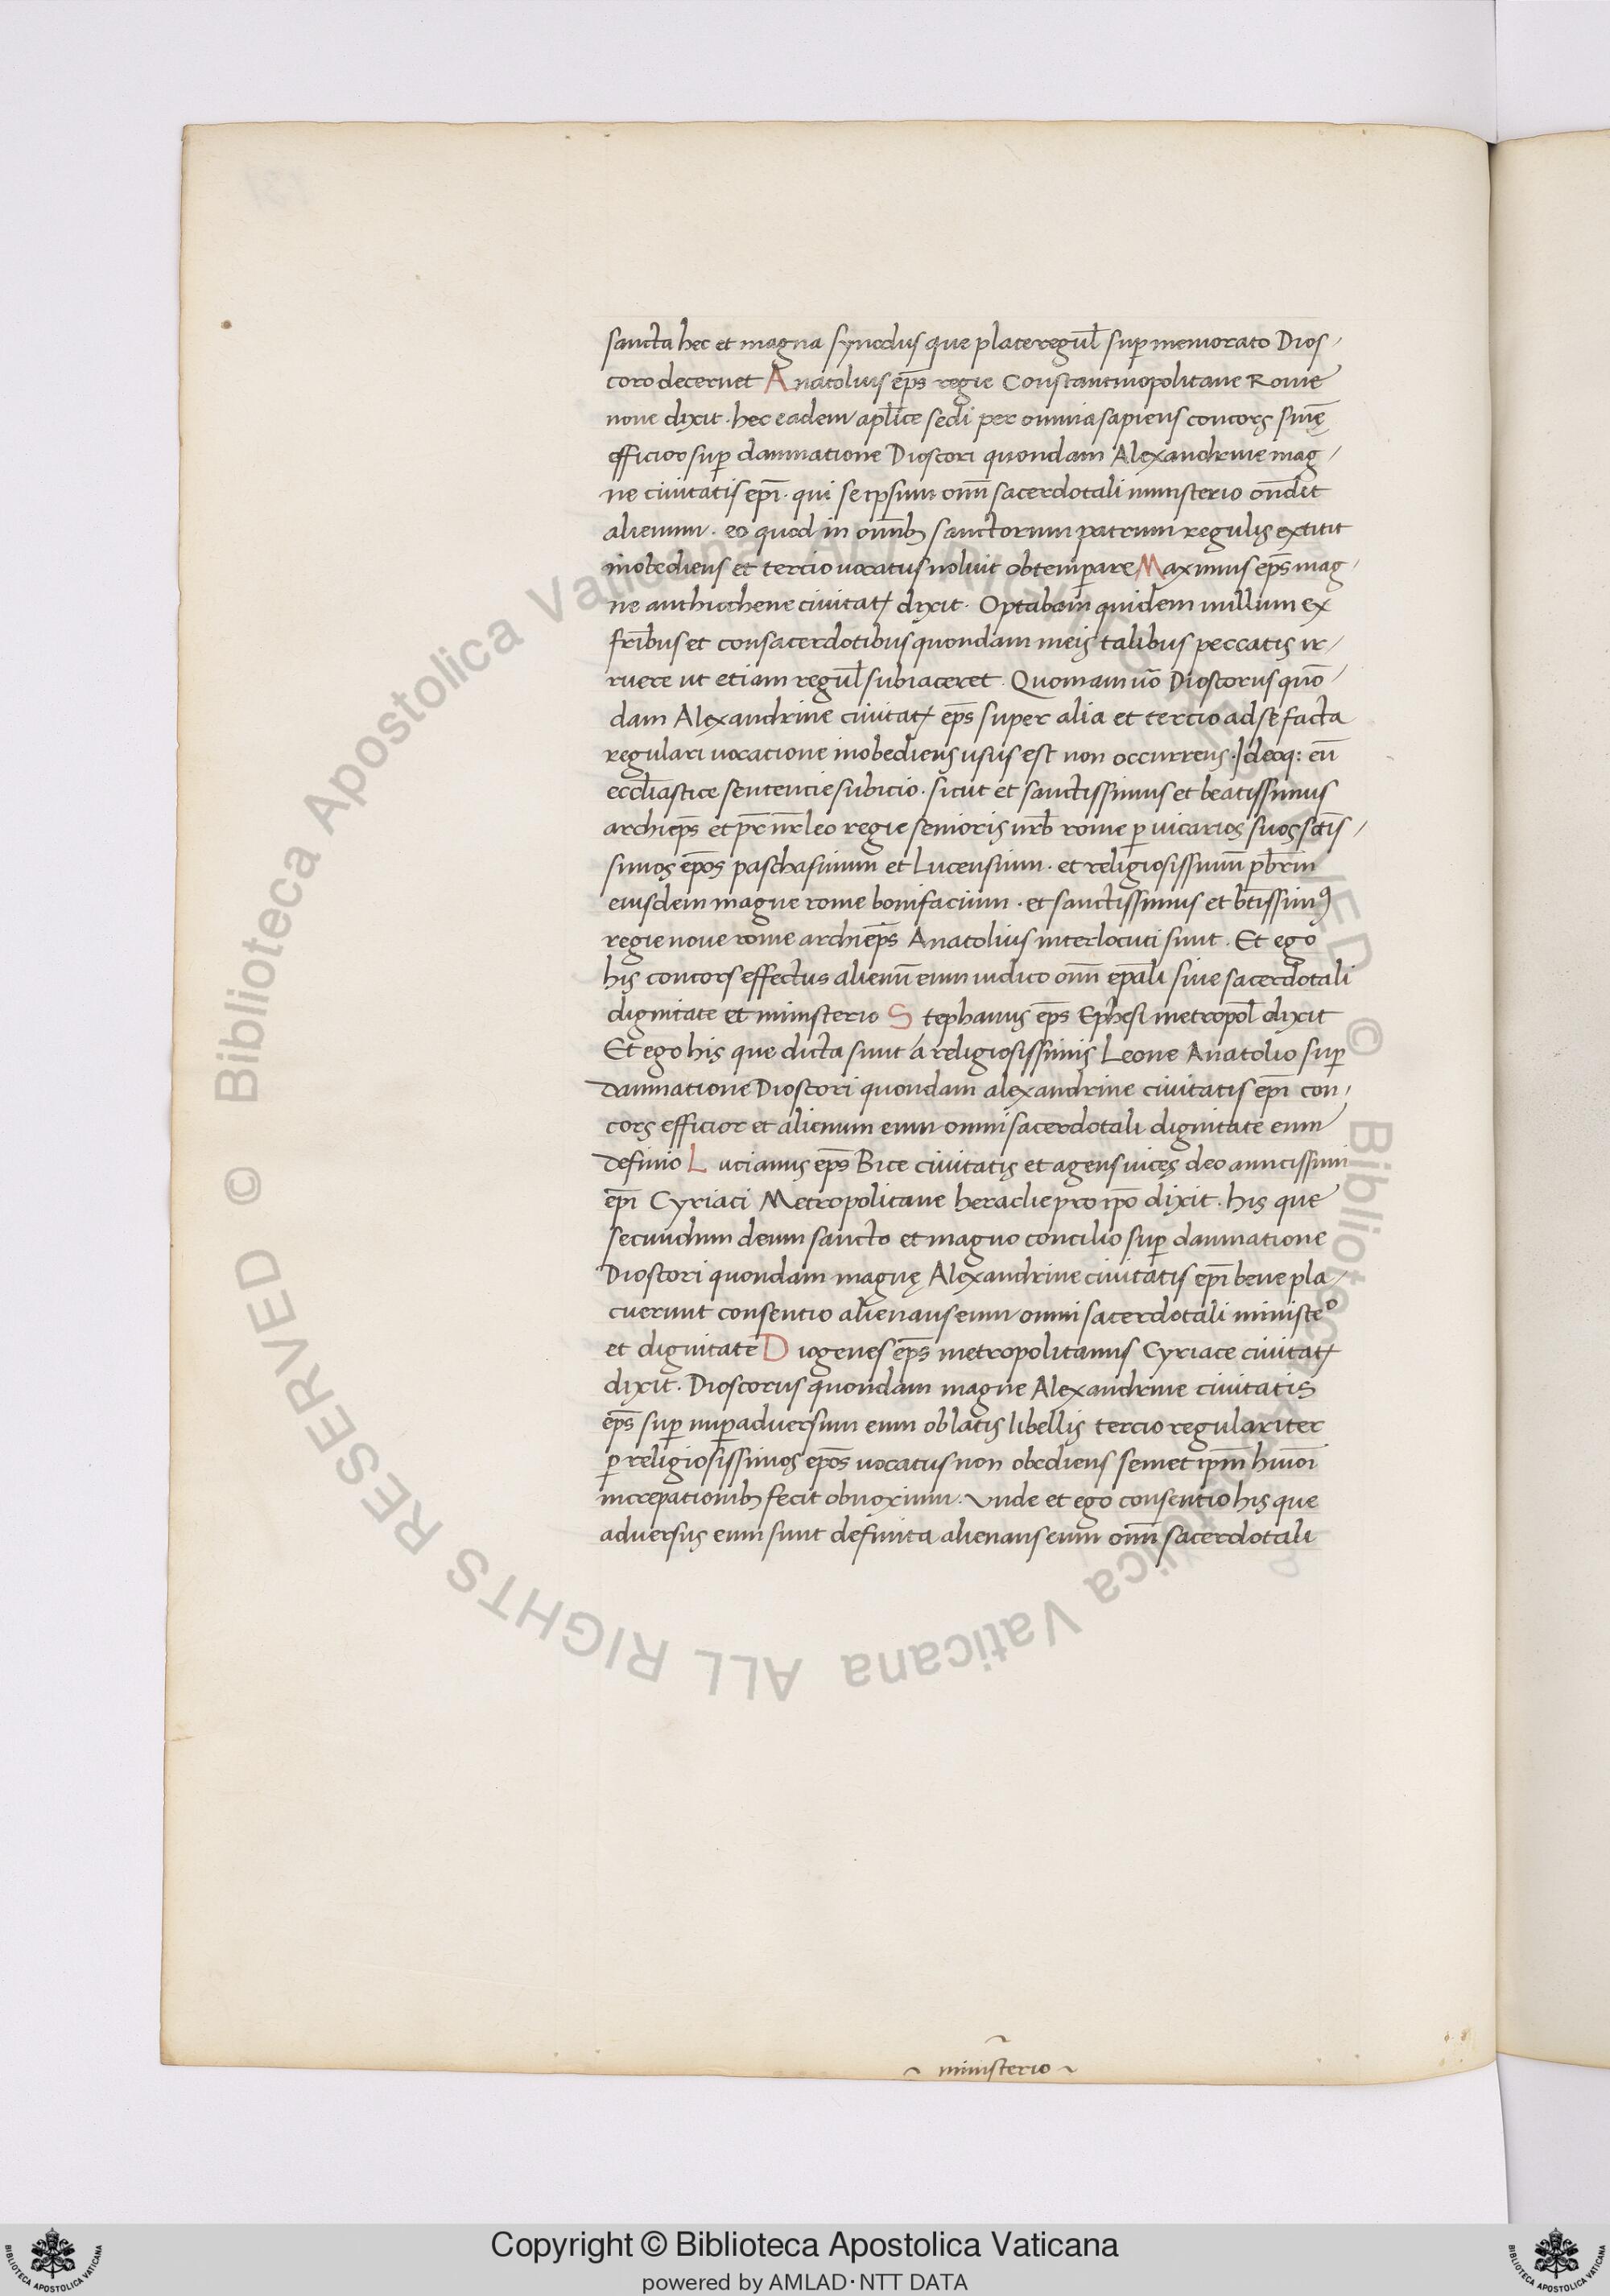 sancta hec et magna synodus que placeregul̄ sup̄ memorato Dios-
coro decernet Anatolius ep̄s regie Constantinopolitane Rome
noue dixit · hec eadem apl̄ice sedi per omnia sapiens concors sinę
efficior sup̄ damnatione Dioscori quondam Alexandrine mag-
ne ciuitatis ep̄i · qui se ipsum om̄i sacerdotali ministerio on̄dit
alienum · eo quod in om̄ib; sanctorum patrum regulis extitit
inobediens et tercio uocatus noluit obtemp̄are Maximus ep̄s mag-
ne anthiochene ciuitatꝭ dixit · Optabam quidem nullum ex
fr̄ibus et consacerdotibus quondam meis talibus peccatis ir-
ruere ut etiam regul̄ subiaceret · Quoniam uō Dioscorus quō-
dam Alexandrine ciuitatꝭ ep̄s super alia et tercio ad se facta
regulari uocatione inobediens usus est non occurrens · Ideoq: eū
eccl̄iastice sentencie subicio · sicut et sanctissimus et beatissimus
archiep̄s et pr̄ nr̄ leo regie senioris urb̄ rome p̱ uicarios suos sc̄is-
simos ep̄os paschasinum et Lucensium · et religiosissimū pb̄rm̄
eiusdem magne rome bonifacium · et sanctissimus et bt̄issimꝰ
regie noue rome archiep̄s Anatolius interlocuti sunt · Et ego
his concors effectus alienū eum iudico om̄i ep̄ali siue sacerdotali
dignitate et ministerio Stephanus ep̄s Ephesi metropol̄ dixit
Et ego his que dicta sunt a religiosissimis Leone Anatolio sup̄
damnatione Dioscori quondam alexandrine ciuitatis ep̄i con-
cors efficior et alienum eum omni sacerdotali dignitate eum
definio Lucianus ep̄s Bice ciuitatis et agens uices deo amicissimi
ep̄i Cyriaci Metropolitane heraclie pro ip̄o dixit · his que
secundum deum sancto et magno concilio sup̄ damnatione
Dioscori quondam magnę Alexandrine ciuitatis ep̄i bene pla-
cuerunt consentio alienans eum omni sacerdotali ministeº
et dignitate Diogenes ep̄s metropolitanus Cyriace ciuitatꝭ
dixit · Dioscorus quondam magne Alexandrine ciuitatis
ep̄s sup̄ nup̄ aduersum eum oblatis libellis tercio regulariter
p̱ religiosissimos ep̄os uocatus non obediens semet ip̄m hui᷒oī
increpationib; fecit obnoxium · Vnde et ego consentio his que
aduersus eum sunt definita alienans eum om̄i sacerdotali
~ ministerio ~
Copyright © Biblioteca Apostolica Vaticana
powered by AMLAD·NTT DATA
© Biblioteca Apostolica Vaticana ALL RIGHTS RESERVED © Biblioteca Apostolica Vaticana ALL RIGHTS RESERVED
BIBLIOTECA APOSTOLICA VATICANA
BIBLIOTECA APOSTOLICA VATICANA